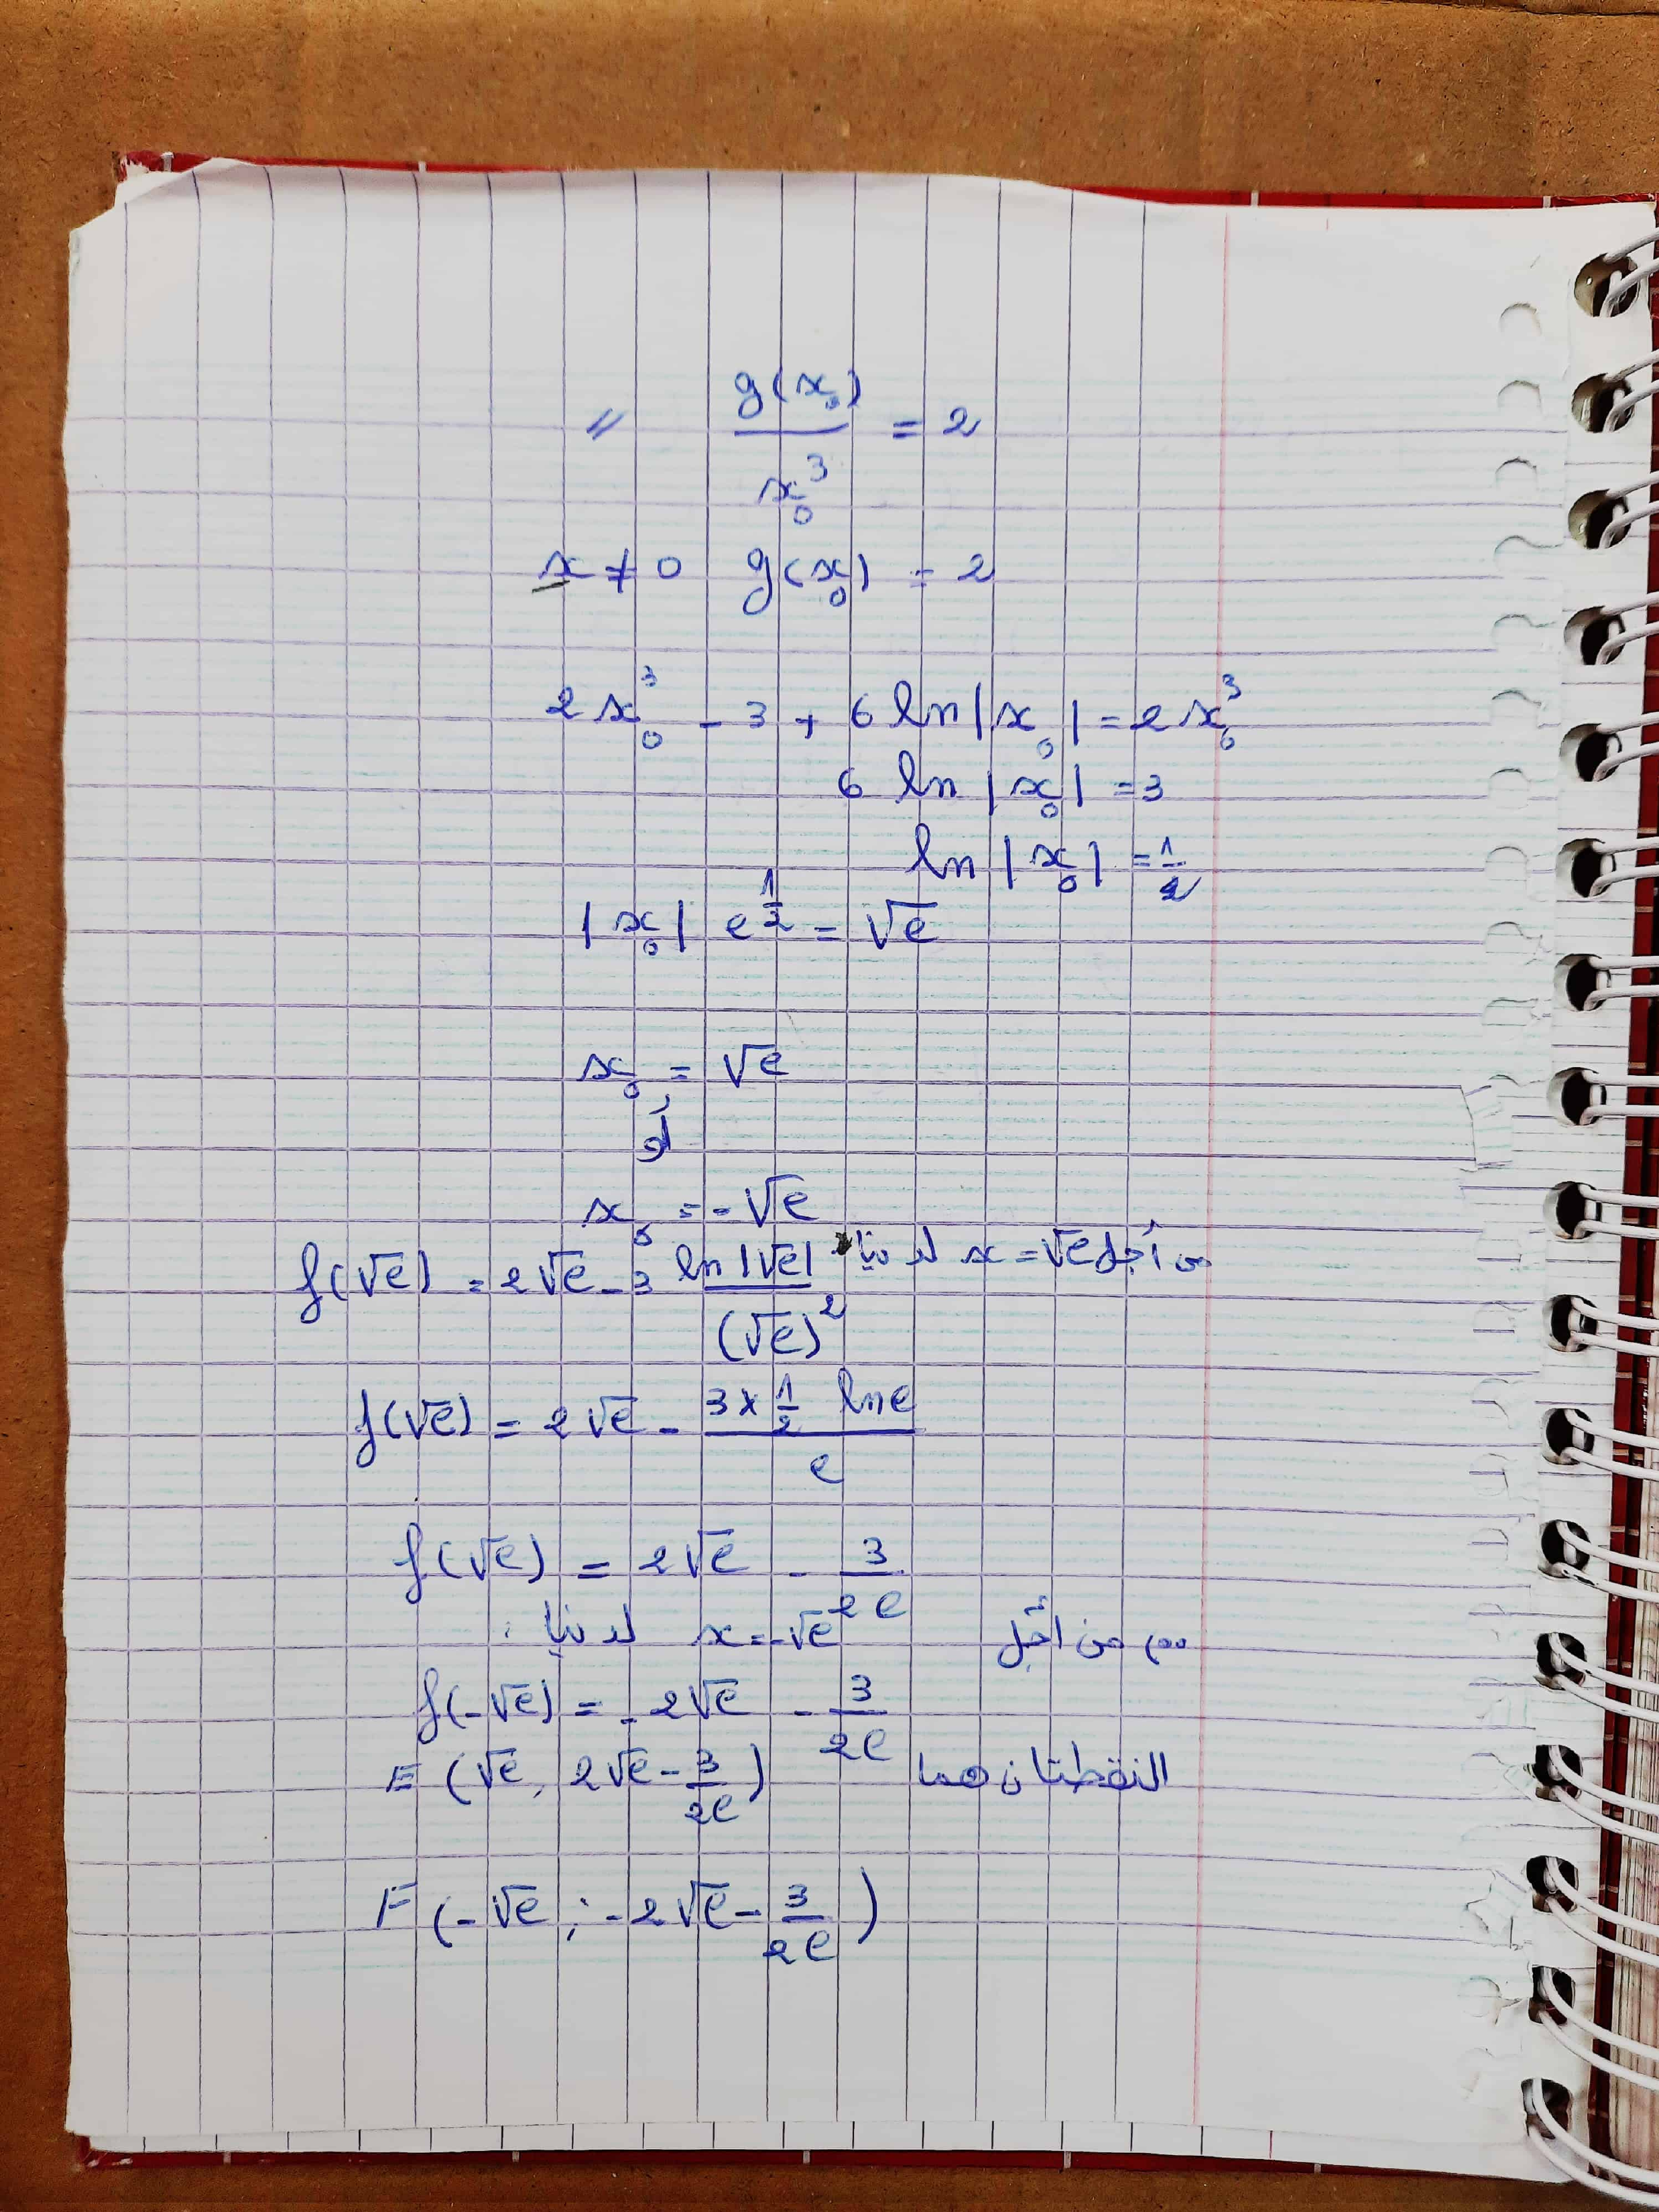 // g(x₀)/x₀³ = 2
x ≠ 0 g(x₀) = 2
2x₀³ - 3 + 6 ln|x₀| = 2x₀³
6 ln|x₀| = 3
ln|x₀| = 1/2
|x₀| e^(1/2) = √e
x₀ = √e
أو
x₀ = -√e
من أجل x = √e لدينا
f(√e) = 2√e - 3 ln|√e|/(√e)²
f(√e) = 2√e - (3 × 1/2 ln e)/e
f(√e) = 2√e - 3/2e
من أجل x = -√e لدينا :
f(-√e) = -2√e - 3/2e
النقطتان هما E (√e, 2√e - 3/2e)
F (-√e ; -2√e - 3/2e)